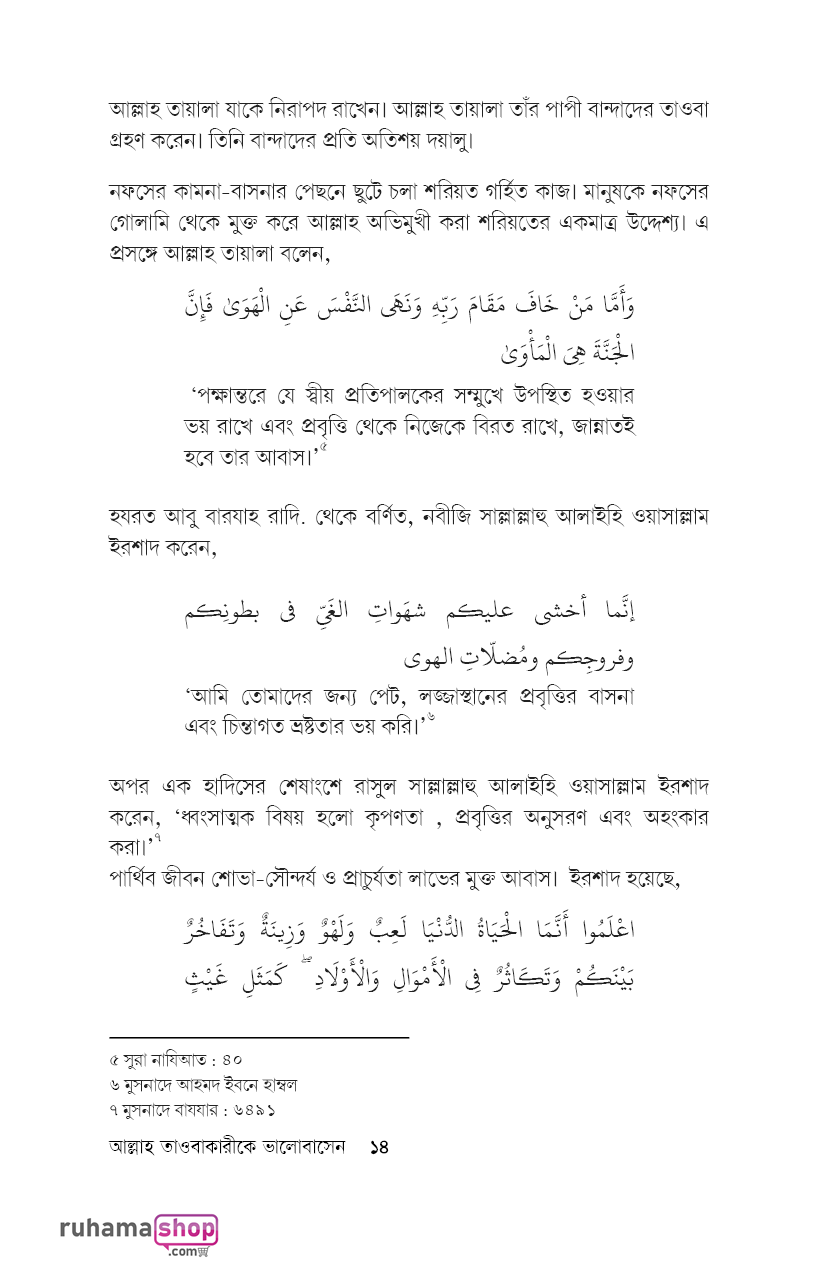 আল্লাহ তায়ালা যাকে নিরাপদ রাখেন। আল্লাহ তায়ালা তাঁর পাপী বান্দাদের তাওবা
গ্রহণ করেন। তিনি বান্দাদের প্রতি অতিশয় দয়ালু।
নফসের কামনা-বাসনার পেছনে ছুটে চলা শরিয়ত গর্হিত কাজ। মানুষকে নফসের
গোলামি থেকে মুক্ত করে আল্লাহ অভিমুখী করা শরিয়তের একমাত্র উদ্দেশ্য। এ
প্রসঙ্গে আল্লাহ তায়ালা বলেন,
وَأَمَّا مَنْ خَافَ مَقَامَ رَبِّهِ وَنَهَى النَّفْسَ عَنِ الْهَوَىٰ فَإِنَّ
الْجَنَّةَ هِيَ الْمَأْوَىٰ
‘পক্ষান্তরে যে স্বীয় প্রতিপালকের সম্মুখে উপস্থিত হওয়ার
ভয় রাখে এবং প্রবৃত্তি থেকে নিজেকে বিরত রাখে, জান্নাতই
হবে তার আবাস।’৫
হযরত আবু বারযাহ রাদি. থেকে বর্ণিত, নবীজি সাল্লাল্লাহু আলাইহি ওয়াসাল্লাম
ইরশাদ করেন,
إنَّما أخشى عليكم شهَواتِ الغَيِّ فى بطونِكم
وفروجِكم ومُضلّاتِ الهوى
‘আমি তোমাদের জন্য পেট, লজ্জাস্থানের প্রবৃত্তির বাসনা
এবং চিন্তাগত ভ্রষ্টতার ভয় করি।’৬
অপর এক হাদিসের শেষাংশে রাসুল সাল্লাল্লাহু আলাইহি ওয়াসাল্লাম ইরশাদ
করেন, ‘ধ্বংসাত্মক বিষয় হলো কৃপণতা , প্রবৃত্তির অনুসরণ এবং অহংকার
করা।’৭
পার্থিব জীবন শোভা-সৌন্দর্য ও প্রাচুর্যতা লাভের মুক্ত আবাস। ইরশাদ হয়েছে,
اعْلَمُوا أَنَّمَا الْحَيَاةُ الدُّنْيَا لَعِبٌ وَلَهْوٌ وَزِينَةٌ وَتَفَاخُرٌ
بَيْنَكُمْ وَتَكَاثُرٌ فِي الْأَمْوَالِ وَالْأَوْلَادِ ۖ كَمَثَلِ غَيْثٍ
৫ সুরা নাযিআত : ৪০
৬ মুসনাদে আহমদ ইবনে হাম্বল
৭ মুসনাদে বাযযার : ৬৪৯১
আল্লাহ তাওবাকারীকে ভালোবাসেন ১৪
ruhamashop
.com